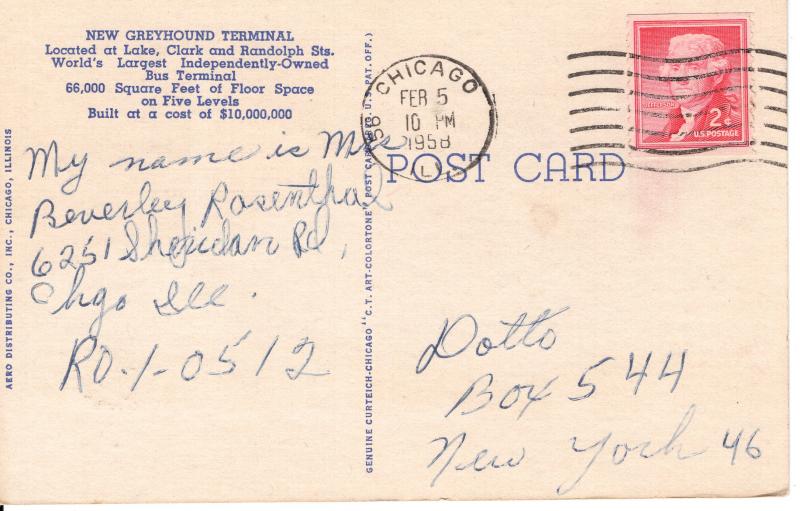 NEW GREYHOUND TERMINAL
Located at Lake, Clark and Randolph Sts.
World's Largest Independently-Owned
Bus Terminal
66,000 Square Feet of Floor Space
on Five Levels
Built at a cost of $10,000,000
My name is Mrs
Beverley Rosenthal
6251 Sheridan Rd,
Chgo Ill.
RO-1-0512
AERO DISTRIBUTING CO., INC., CHICAGO, ILLINOIS
GENUINE CURTEICH-CHICAGO "C.T. ART-COLORTONE" POST CARD (REG. U.S. PAT. OFF.)
CHICAGO
FEB 5
10 PM
1958
ILL.
POST CARD
JEFFERSON
2¢
U.S. POSTAGE
Dotto
Box 544
New York 46